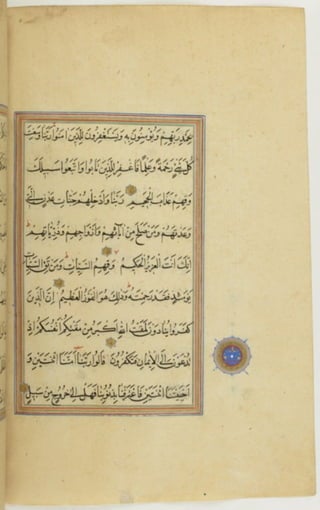 بحمد ربهم ويؤمنون به ويستغفرون للذين امنوا ربنا وسعت
كل شيء رحمة وعلما فاغفر للذين تابوا واتبعوا سبيلك
وقهم عذاب الجحيم ربنا وادخلهم جنات عدن التي
وعدتهم ومن صلح من آبائهم وازواجهم وذرياتهم
انك انت العزيز الحكيم وقهم السيئات ومن تق السيئات
يومئذ فقد رحمته وذلك هو الفوز العظيم ان الذين
كفروا ينادون لمقت الله اكبر من مقتكم انفسكم اذ
تدعون الى الايمان فتكفرون قالوا ربنا امتنا اثنتين و
احييتنا اثنتين فاعترفنا بذنوبنا فهل الى خروج من سبيل